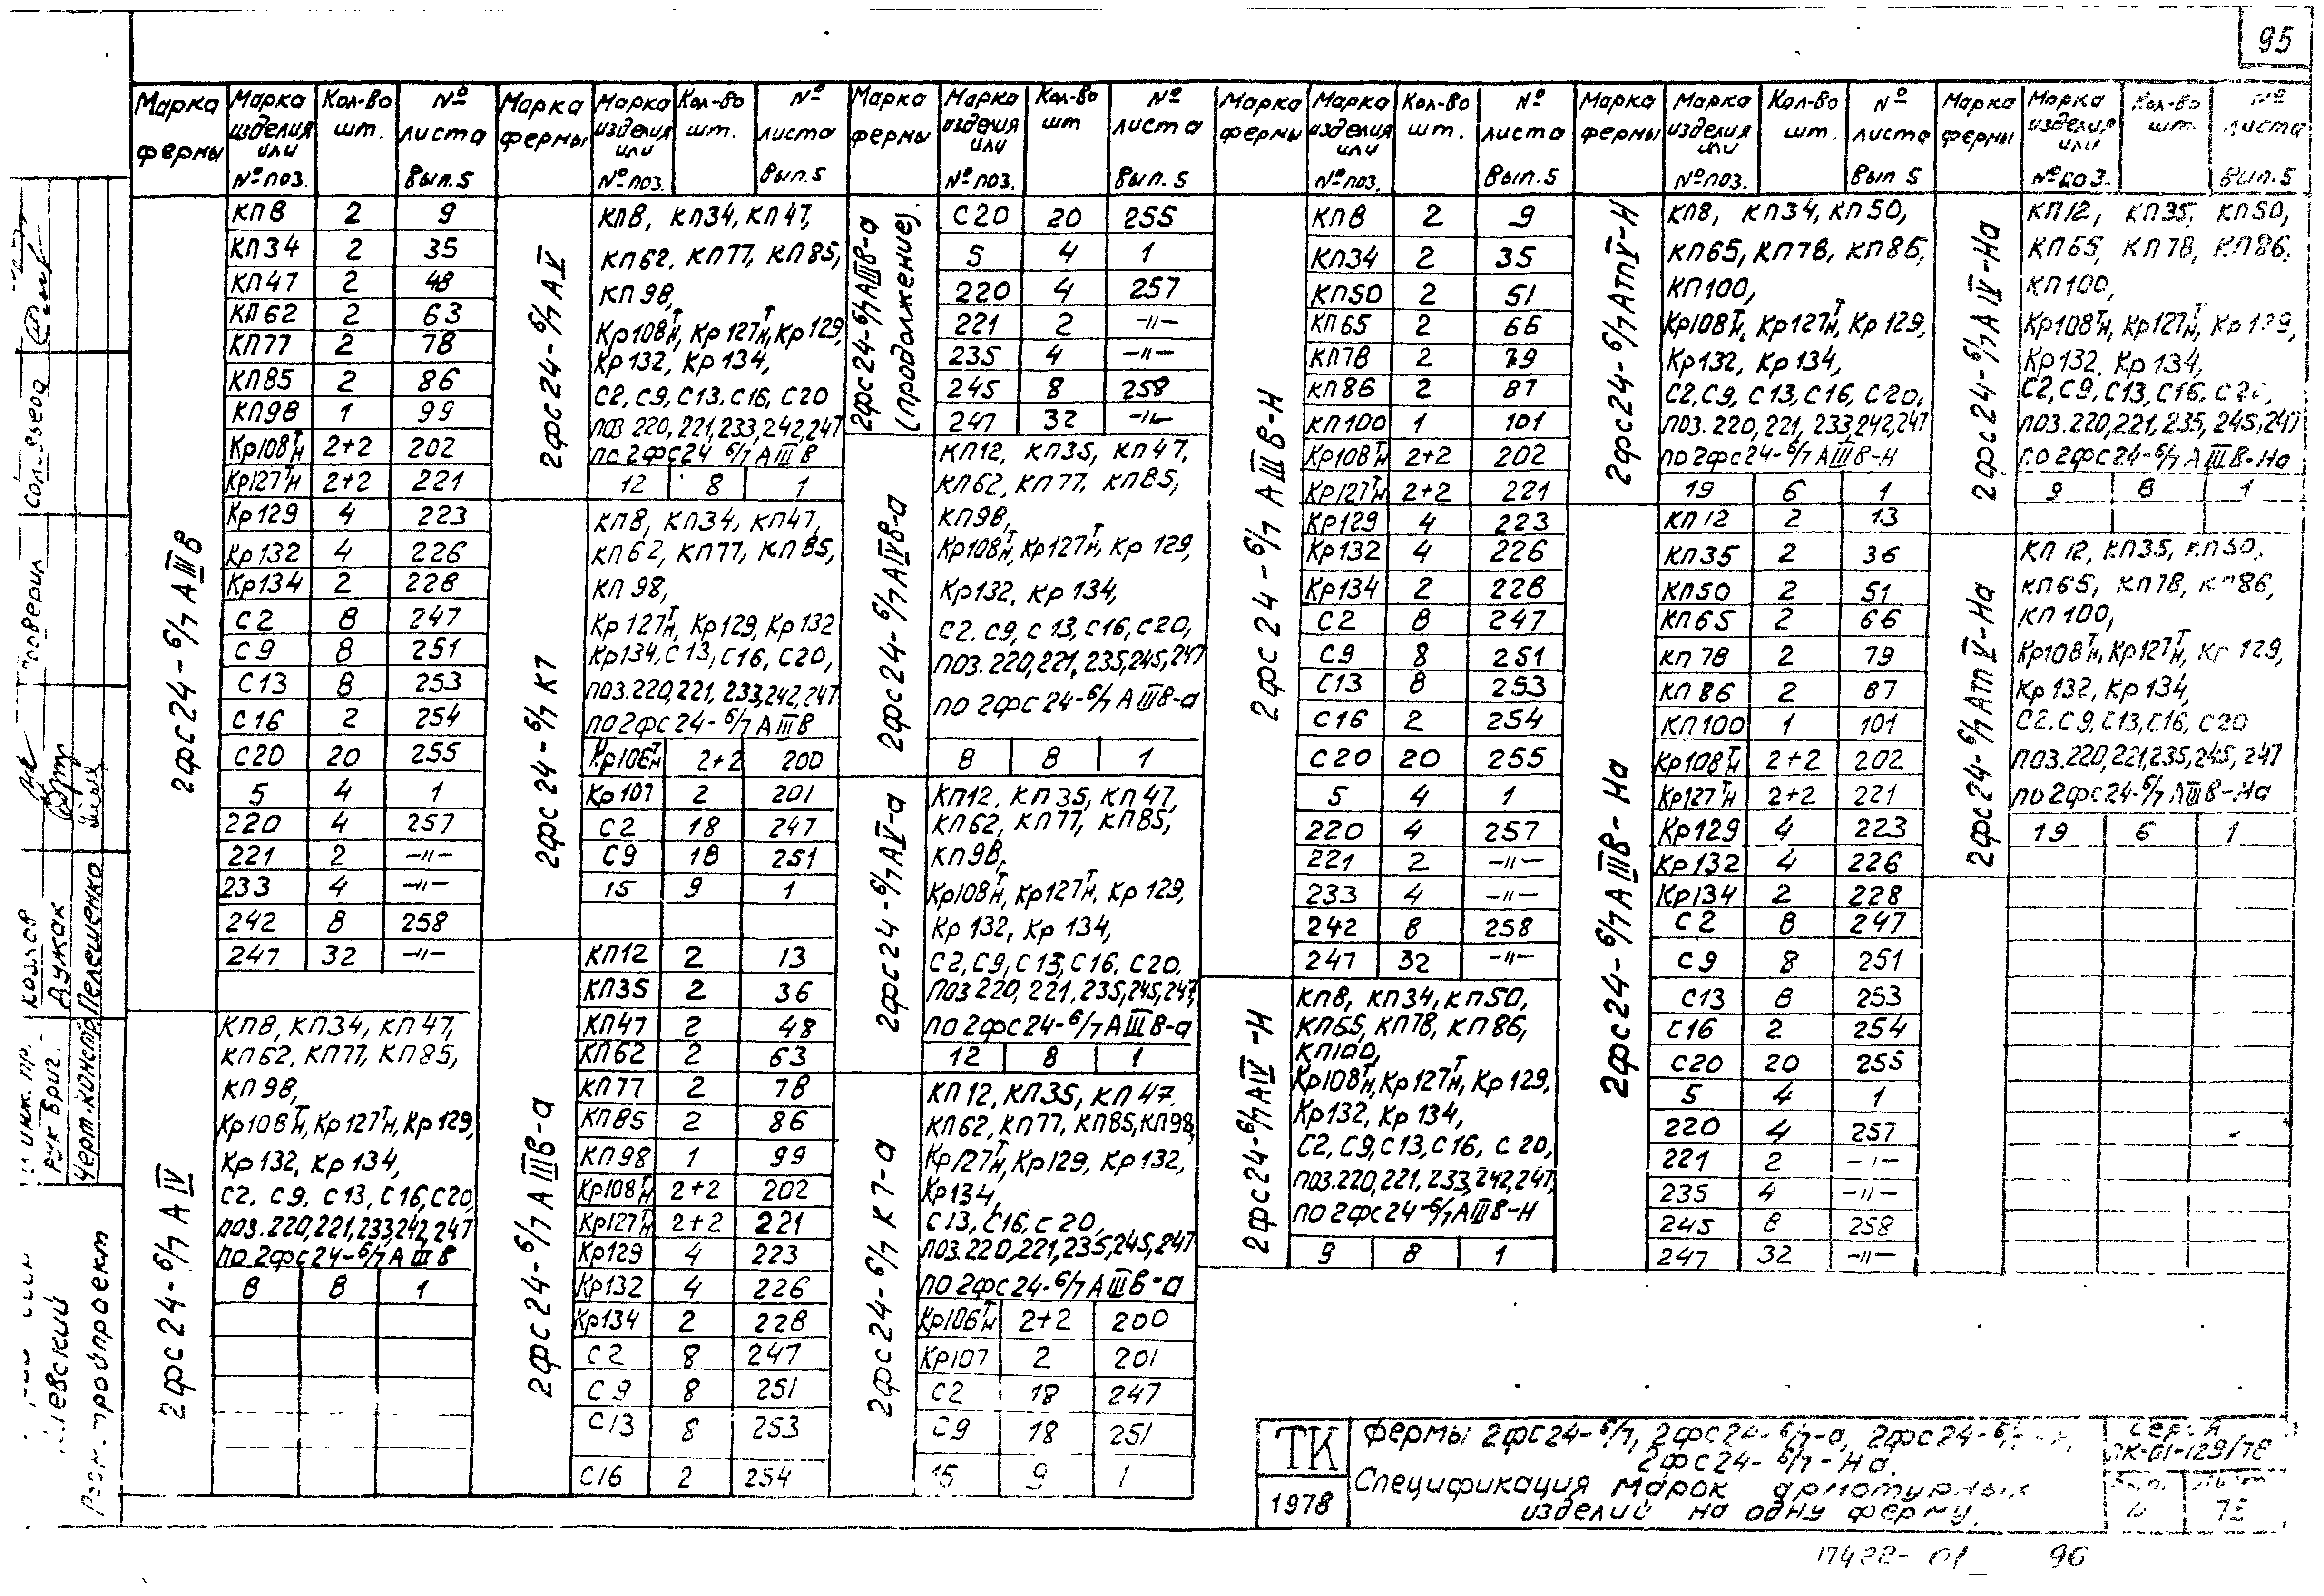 95
Марка фермы | Марка изделия или № поз. | Кол-во шт. | № листа Вып. 5
2ФС24-6/7 АIIIВ
КП8 2 9
КП34 2 35
КП47 2 48
КП62 2 63
КП77 2 78
КП85 2 86
КП98 1 99
Кр108Т/Н 2+2 202
Кр127Т/Н 2+2 221
Кр129 4 223
Кр132 4 226
Кр134 2 228
С2 8 247
С9 8 251
С13 8 253
С16 2 254
С20 20 255
5 4 1
220 4 257
221 2 —〃—
233 4 —〃—
242 8 258
247 32 —〃—
2ФС24-6/7 АIV
КП8, КП34, КП47,
КП62, КП77, КП85,
КП98,
Кр108Т/Н, Кр127Т/Н, Кр129,
Кр132, Кр134,
С2, С9, С13, С16, С20,
поз. 220, 221, 233, 242, 247
по 2ФС24-6/7 АIIIВ
8 8 1
Марка фермы | Марка изделия или № поз. | Кол-во шт. | № листа Вып. 5
2ФС24-6/7 АV
КП8, КП34, КП47,
КП62, КП77, КП85,
КП98,
Кр108Т/Н, Кр127Т/Н, Кр129,
Кр132, Кр134,
С2, С9, С13, С16, С20
поз 220, 221, 233, 242, 247
по 2ФС24 6/7 АIIIВ
12 8 1
2ФС24-6/7 К7
КП8, КП34, КП47,
КП62, КП77, КП85,
КП98,
Кр127Т/Н, Кр129, Кр132
Кр134, С13, С16, С20,
поз. 220, 221, 233, 242, 247
по 2ФС24-6/7 АIIIВ
Кр106Т/Н 2+2 200
Кр107 2 201
С2 18 247
С9 18 251
15 9 1
2ФС24-6/7 АIIIВ-а
КП12 2 13
КП35 2 36
КП47 2 48
КП62 2 63
КП77 2 78
КП85 2 86
КП98 1 99
Кр108Т/Н 2+2 202
Кр127Т/Н 2+2 221
Кр129 4 223
Кр132 4 226
Кр134 2 228
С2 8 247
С9 8 251
С13 8 253
С16 2 254
Марка фермы | Марка изделия или № поз. | Кол-во шт | № листа Вып. 5
2ФС24-6/7 АIIIВ-а (продолжение).
С20 20 255
5 4 1
220 4 257
221 2 —〃—
235 4 —〃—
245 8 258
247 32 —〃—
2ФС24-6/7 АIVВ-а
КП12, КП35, КП47,
КП62, КП77, КП85,
КП98,
Кр108Т/Н, Кр127Т/Н, Кр129,
Кр132, Кр134,
С2. С9, С13, С16, С20,
поз. 220, 221, 235, 245, 247
по 2ФС24-6/7 АIIIВ-а
8 8 1
2ФС24-6/7 АV-а
КП12, КП35, КП47,
КП62, КП77, КП85,
КП98,
Кр108Т/Н, Кр127Т/Н, Кр129,
Кр132, Кр134,
С2, С9, С13, С16. С20,
поз 220, 221, 235, 245, 247,
по 2ФС24-6/7 АIIIВ-а
12 8 1
2ФС24-6/7 К7-а
КП12, КП35, КП47.
КП62, КП77, КП85, КП98,
Кр127Т/Н, Кр129, Кр132,
Кр134,
С13, С16, С20,
поз. 220, 221, 235, 245, 247
по 2ФС24-6/7 АIIIВ-а
Кр106Т/Н 2+2 200
Кр107 2 201
С2 18 247
С9 18 251
15 9 1
Марка фермы | Марка изделия или № поз. | Кол-во шт. | № листа Вып. 5
2ФС24-6/7 АIIIВ-Н
КП8 2 9
КП34 2 35
КП50 2 51
КП65 2 66
КП78 2 79
КП86 2 87
КП100 1 101
Кр108Т/Н 2+2 202
Кр127Т/Н 2+2 221
Кр129 4 223
Кр132 4 226
Кр134 2 228
С2 8 247
С9 8 251
С13 8 253
С16 2 254
С20 20 255
5 4 1
220 4 257
221 2 —〃—
233 4 —〃—
242 8 258
247 32 —〃—
2ФС24-6/7 АIV-Н
КП8, КП34, КП50,
КП65, КП78, КП86,
КП100,
Кр108Т/Н, Кр127Т/Н, Кр129,
Кр132, Кр134,
С2, С9, С13, С16, С20,
поз. 220, 221, 233, 242, 247,
по 2ФС24-6/7 АIIIВ-Н
9 8 1
Марка фермы | Марка изделия или № поз. | Кол-во шт. | № листа Вып 5
2ФС24-6/7 АтV-Н
КП8, КП34, КП50,
КП65, КП78, КП86,
КП100,
Кр108Т/Н, Кр127Т/Н, Кр129,
Кр132, Кр134,
С2, С9, С13, С16, С20,
поз. 220, 221, 233, 242, 247
по 2ФС24-6/7 АIIIВ-Н
19 6 1
2ФС24-6/7 АIIIВ-На
КП12 2 13
КП35 2 36
КП50 2 51
КП65 2 66
КП78 2 79
КП86 2 87
КП100 1 101
Кр108Т/Н 2+2 202
Кр127Т/Н 2+2 221
Кр129 4 223
Кр132 4 226
Кр134 2 228
С2 8 247
С9 8 251
С13 8 253
С16 2 254
С20 20 255
5 4 1
220 4 257
221 2 —〃—
235 4 —〃—
245 8 258
247 32 —〃—
Марка фермы | Марка изделия или № поз. | Кол-во шт. | № листа Вып. 5
2ФС24-6/7 АIV-На
КП12, КП35, КП50,
КП65, КП78, КП86,
КП100,
Кр108Т/Н, Кр127Т/Н, Кр129,
Кр132. Кр134,
С2, С9, С13, С16. С20,
поз. 220, 221, 235, 245, 247
по 2ФС24-6/7 АIIIВ-На
9 8 1
2ФС24-6/7 АтV-На
КП12, КП35, КП50,
КП65, КП78, КП86,
КП100,
Кр108Т/Н, Кр127Т/Н, Кр129,
Кр132, Кр134,
С2. С9, С13, С16, С20
поз. 220, 221, 235, 245, 247
по 2ФС24-6/7 АIIIВ-На
19 6 1
Проверил Соловьева
инж. пр. Козлов
Рук бриг. Дужак
Черт.-констр. Пелешенко
Киевский
ТК
1978
Фермы 2ФС24-6/7, 2ФС24-6/7-а, 2ФС24-6/
2ФС24-6/7-На.
Спецификация марок арматурных
изделий на одну ферму.
Серия
ПК-01-129/78
4
17422-01 96